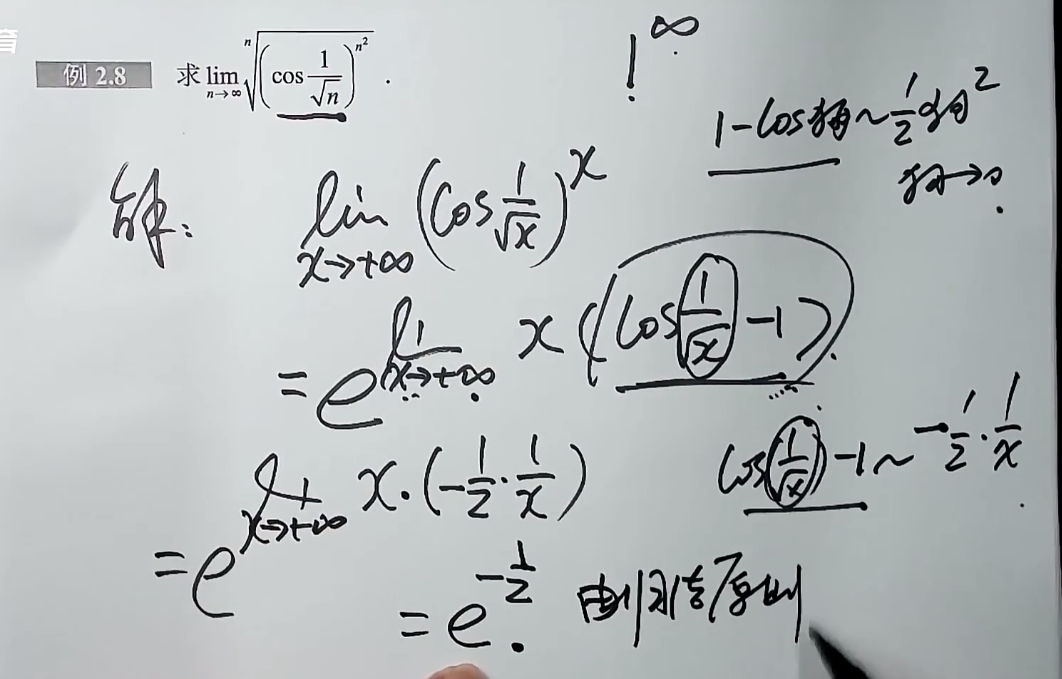 育
例 2.8 求 lim_{n→∞} \sqrt[n]{(cos 1/√n)^{n²}} .
1^∞
1-cos狗~1/2狗²
狗→0
解: lim_{x→+∞} (cos 1/√x)^x
= e^{lim_{x→+∞} x(cos 1/√x -1)}
cos 1/√x -1 ~ -1/2·1/x
= e^{lim_{x→+∞} x·(-1/2·1/x)}
= e^{-1/2}. 由归结原则